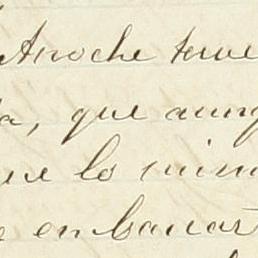 Anoche tuve
a, que aunq
ue lo mism
e embarcar